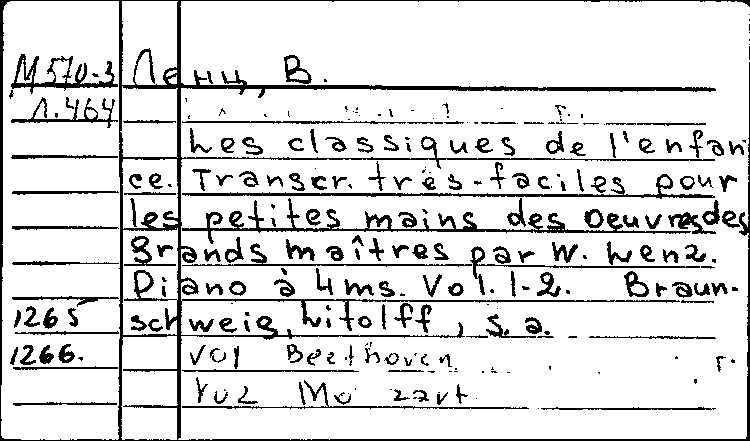 М 570-3 Ленц, В.
Л.464
Les classiques de l'enfan
ce. Transcr. très-faciles pour
les petites mains des Oeuvres des
grands maîtres par W. Lenz.
Piano à 4 ms. Vol. 1-2. Braun-
1265 schweig, Litolff, s. a.
1266. Vol Beethoven
Vo2 Mo zart